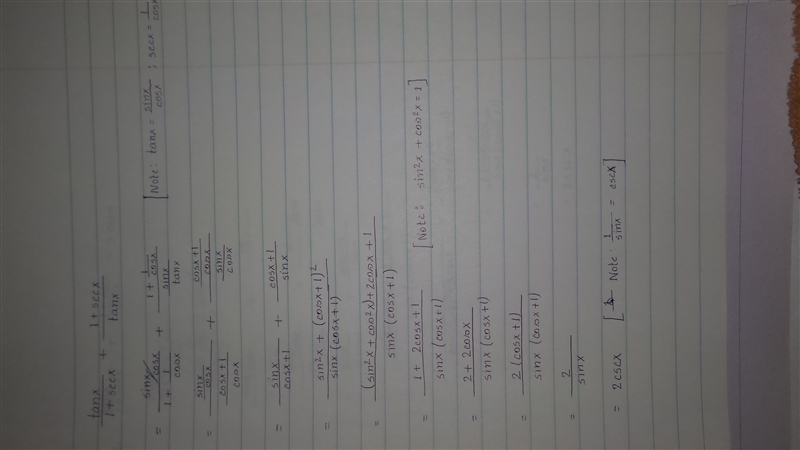 tanx/(1 + secx) + (1 + secx)/tanx
= (sinx/cosx)/(1 + 1/cosx) + (1 + 1/cosx)/(sinx/cosx) tanx [Note: tanx = sinx/cosx ; secx = 1/cosx
= (sinx/cosx)/((cosx+1)/cosx) + ((cosx+1)/cosx)/(sinx/cosx)
= sinx/(cosx+1) + (cosx+1)/sinx
= (sin²x + (cosx+1)²)/(sinx (cosx+1))
= ((sin²x + cos²x) + 2cosx + 1)/(sinx (cosx+1))
= (1 + 2cosx + 1)/(sinx (cosx+1)) [Note: sin²x + cos²x = 1]
= (2 + 2cosx)/(sinx (cosx+1))
= 2(cosx+1)/(sinx (cosx+1))
= 2/sinx
= 2cscx [Note: 1/sinx = cscx]